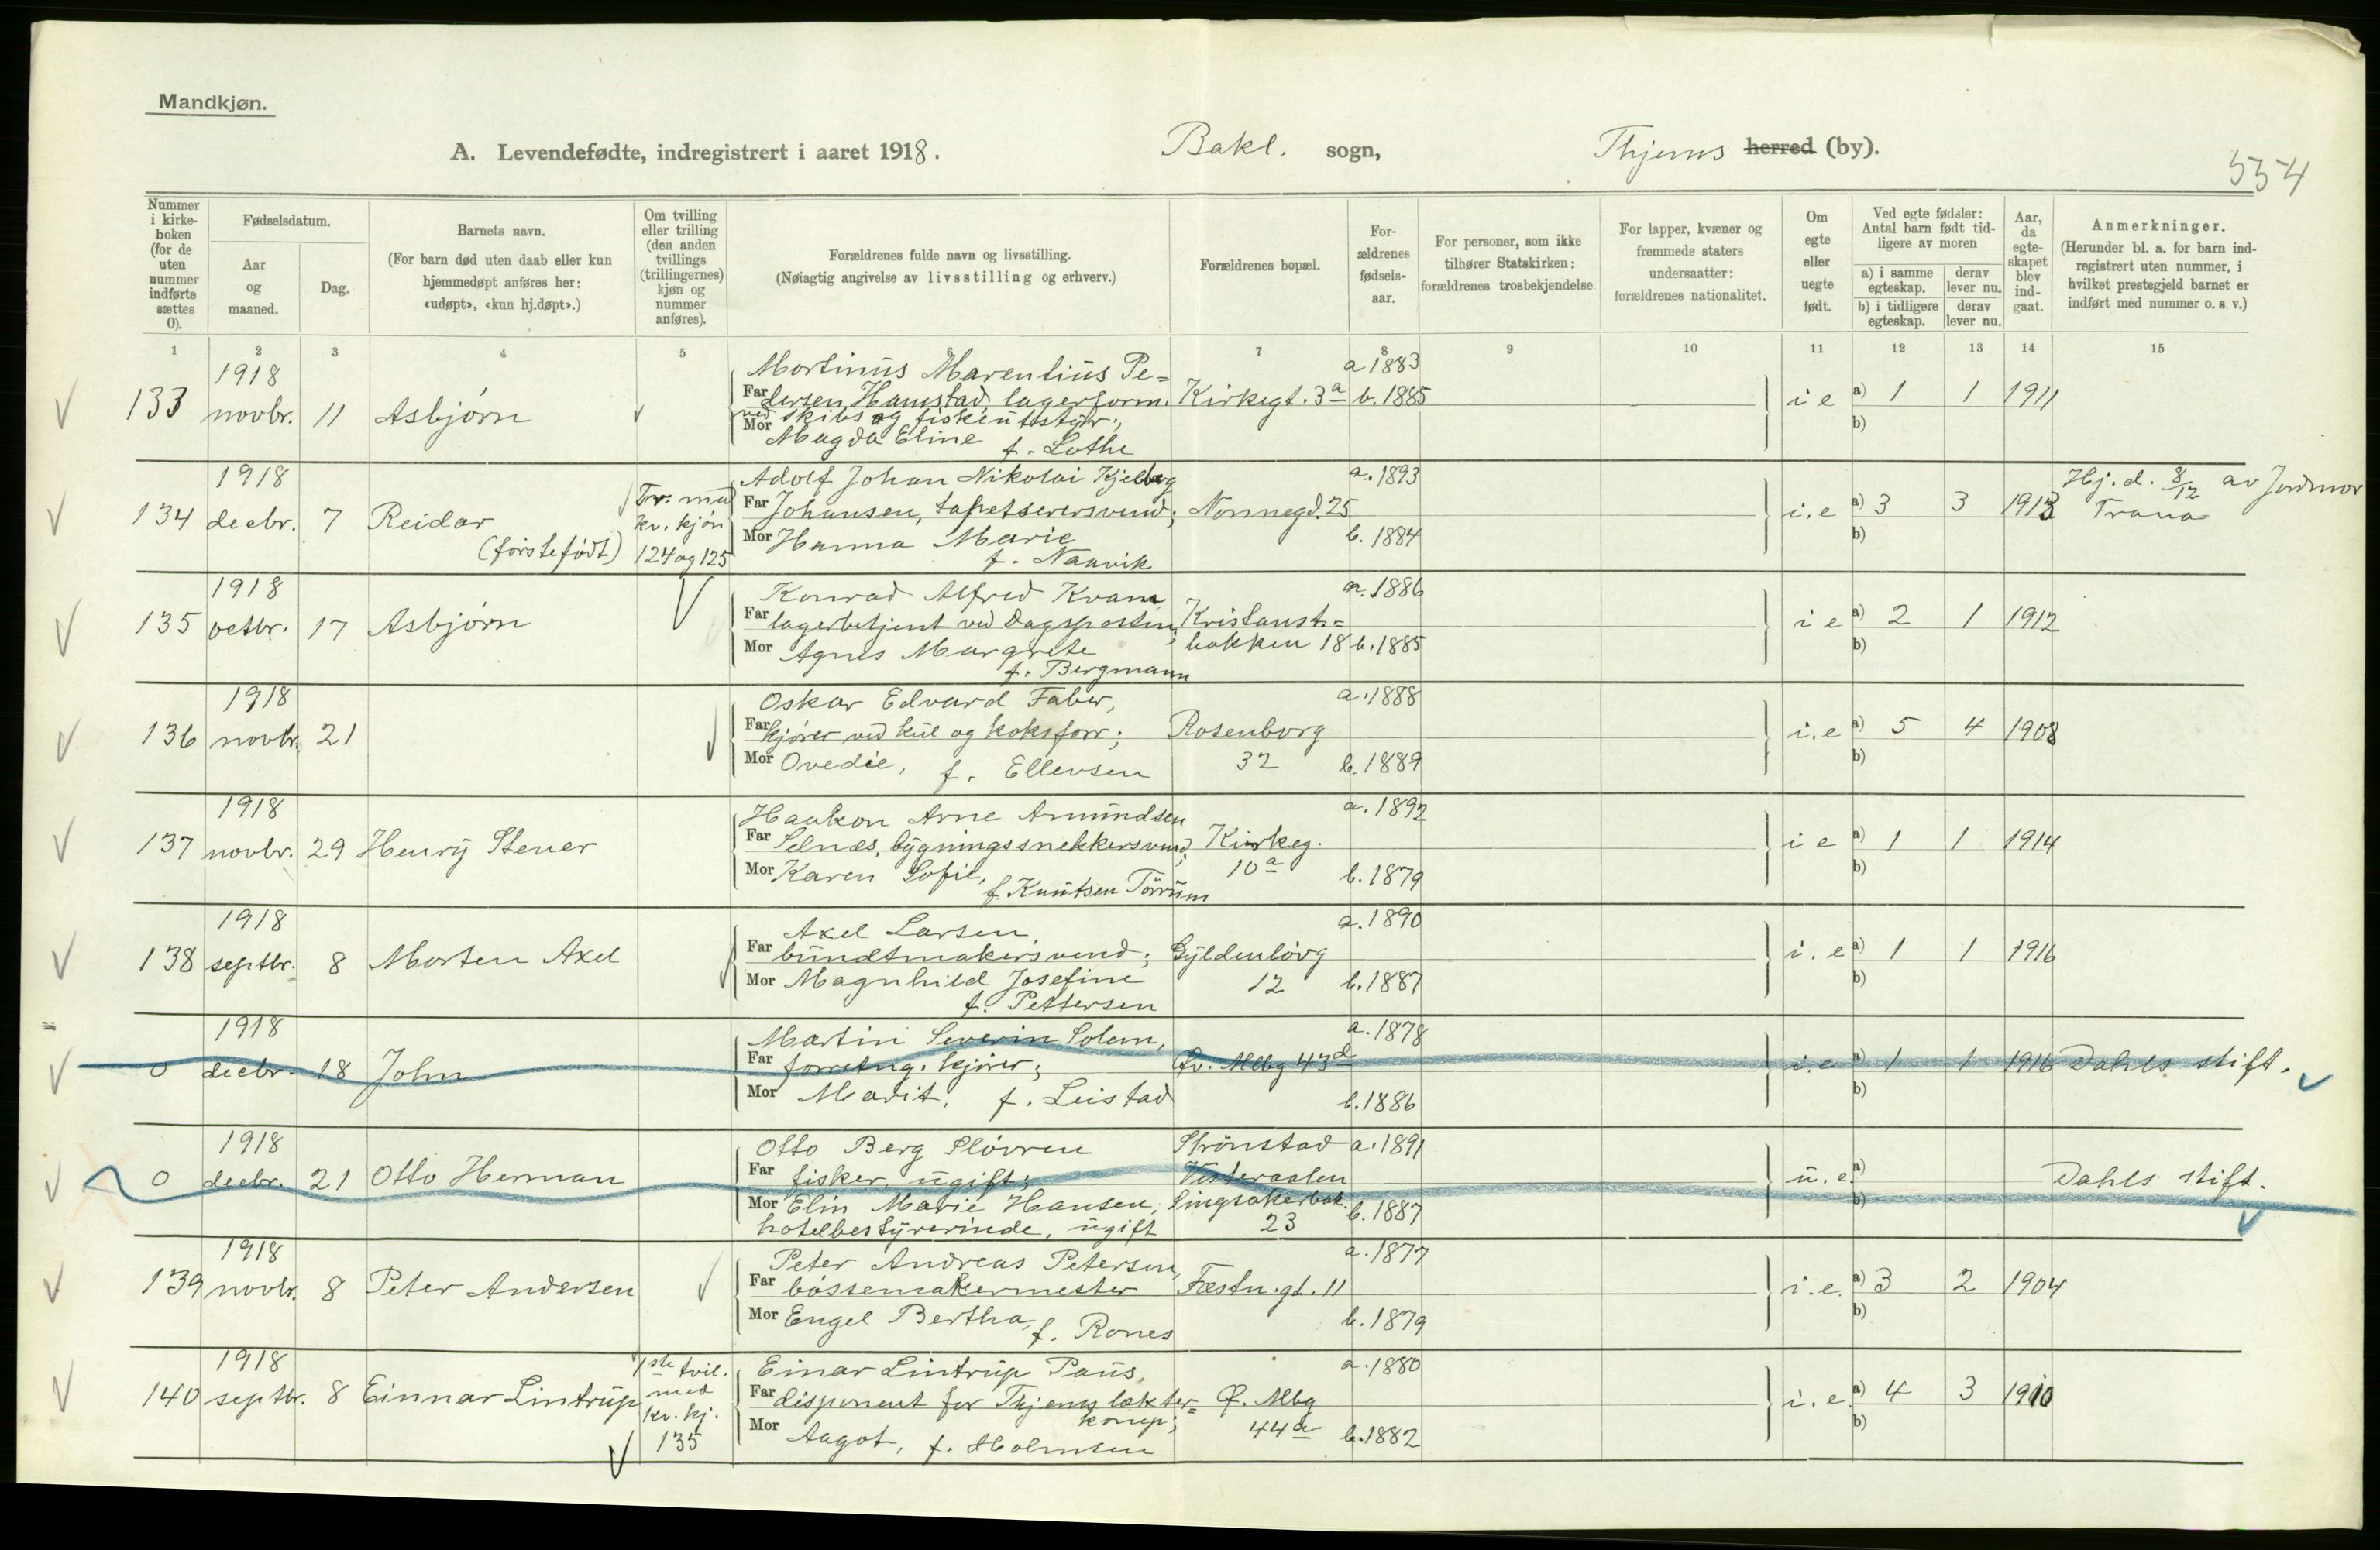 Mandkjøn.
A. Levendefødte, indregistrert i aaret 1918. Bakl. sogn, Thjems herred (by).
554
Nummer i kirke-boken (for de uten nummer indførte sættes 0).
Fødselsdatum.
Aar og maaned.
Dag.
Barnets navn.
(For barn død uten daab eller kun hjemmedøpt anføres her: «udøpt», «kun hj.døpt».)
Om tvilling eller trilling (den anden tvillings (trillingernes) kjøn og nummer anføres).
Forældrenes fulde navn og livsstilling.
(Nøiagtig angivelse av livsstilling og erhverv.)
Forældrenes bopæl.
For-ældrenes fødsels-aar.
For personer, som ikke tilhører Statskirken: forældrenes trosbekjendelse
For lapper, kvæner og fremmede staters undersaatter: forældrenes nationalitet.
Om egte eller uegte født.
Ved egte fødsler: Antal barn født tid-ligere av moren
a) i samme egteskap.
derav lever nu.
b) i tidligere egteskap.
derav lever nu.
Aar, da egte-skapet blev ind-gaat.
Anmerkninger.
(Herunder bl. a. for barn ind-registrert uten nummer, i hvilket prestegjeld barnet er indført med nummer o. s. v.)
1 2 3 4 5 7 8 9 10 11 12 13 14 15
1918 Mortinus Marentius Pe= a 1883
133 novbr. 11 Asbjørn Far dersen Hamstad, lagerform. Kirkegt. 3a b. 1885 i e a) 1 1 1911
ved skibs og fiskeutstyr; b)
Mor Magda Eline f. Lothe
1918 Adolf Johan Nikolai Kjelberg a. 1893 Hj. d. 8/12 av Jordmor
134 decbr. 7 Reidar Tr. med Far Johansen, tapetserersvend; Nonnegd. 25 i. e a) 3 3 1913 Trana
(førstefødt) kv. kjøn Mor Hanna Marie b. 1884 b)
124 og 125 f. Naavik
1918 Konrad Alfred Kvam a. 1886
135 octbr. 17 Asbjørn Far lagerbetjent ved Dagsposten; Kristianst= i e a) 2 1 1912
Mor Agnes Margrete bakken 18 b. 1885 b)
f. Bergmann
1918 Oskar Edvard Faber, a. 1888
136 novbr. 21 Far kjører ved kul og koksforr; Rosenborg i. e a) 5 4 1908
Mor Ovedie, f. Ellevsen 32 b. 1889 b)
1918 Haakon Arne Amundsen a. 1892
137 novbr. 29 Henry Stener Far Selnæs, bygningssnekkersvend; Kirkeg. i e a) 1 1 1914
Mor Karen Sofie, 10a b. 1879 b)
f. Knutsen Tørrum
1918 Axel Larsen a. 1890
138 septbr. 8 Morten Axel Far bundtmakersvend; Gyldenløvg i. e a) 1 1 1916
Mor Magnhild Josefine 12 b. 1887 b)
f. Pettersen
1918 Martin Severin Solem, a. 1878
0 decbr. 18 John Far forretng. kjører; Øv. Mbg 43d i. e a) 1 1 1916 Dahls stift.
Mor Marit, f. Leistad b. 1886 b)
1918 Otto Berg Sløvren Strønstad a. 1891
0 decbr. 21 Otto Herman Far fisker, ugift; Vesteraalen u. e. a) Dahls stift.
Mor Elin Marie Hansen, Singsakerbak. b. 1887 b)
hotelbestyrerinde, ugift 23
1918 Peter Andreas Petersen, a. 1877
139 novbr. 8 Peter Andersen Far bøssemakermester Fæstn. gt. 11 i. e. a) 3 2 1904
Mor Engel Bertha, f. Rones b. 1879 b)
1918 1ste tvil. Einar Lintrup Paus, a. 1880
140 septbr. 8 Einnar Lintrup med Far disponent for Thjems lekter= Ø. Mbg i. e. a) 4 3 1910
kv. kj. komp; b)
135 Mor Aagot, f. Holmsen 44a b. 1882